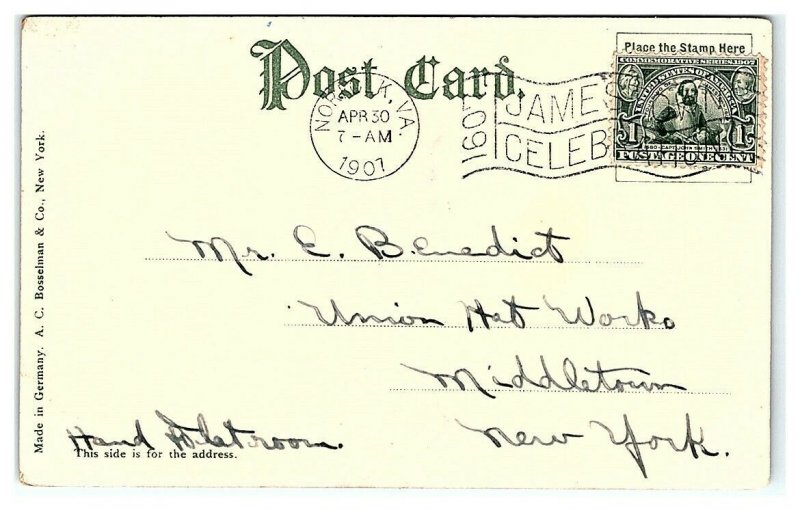 Post Card.
Place the Stamp Here
COMMEMORATIVE SERIES 1907
UNITED STATES OF AMERICA
1 1
1580 CAPT. JOHN SMITH 1631
POSTAGE ONE CENT
NORFOLK, VA.
APR 30
7-AM
1907
1607
JAMES
CELEB
Mr. E. Benedict
Union Hat Works
Middletown
New York.
Hand room.
This side is for the address.
Made in Germany. A. C. Bosselman & Co., New York.